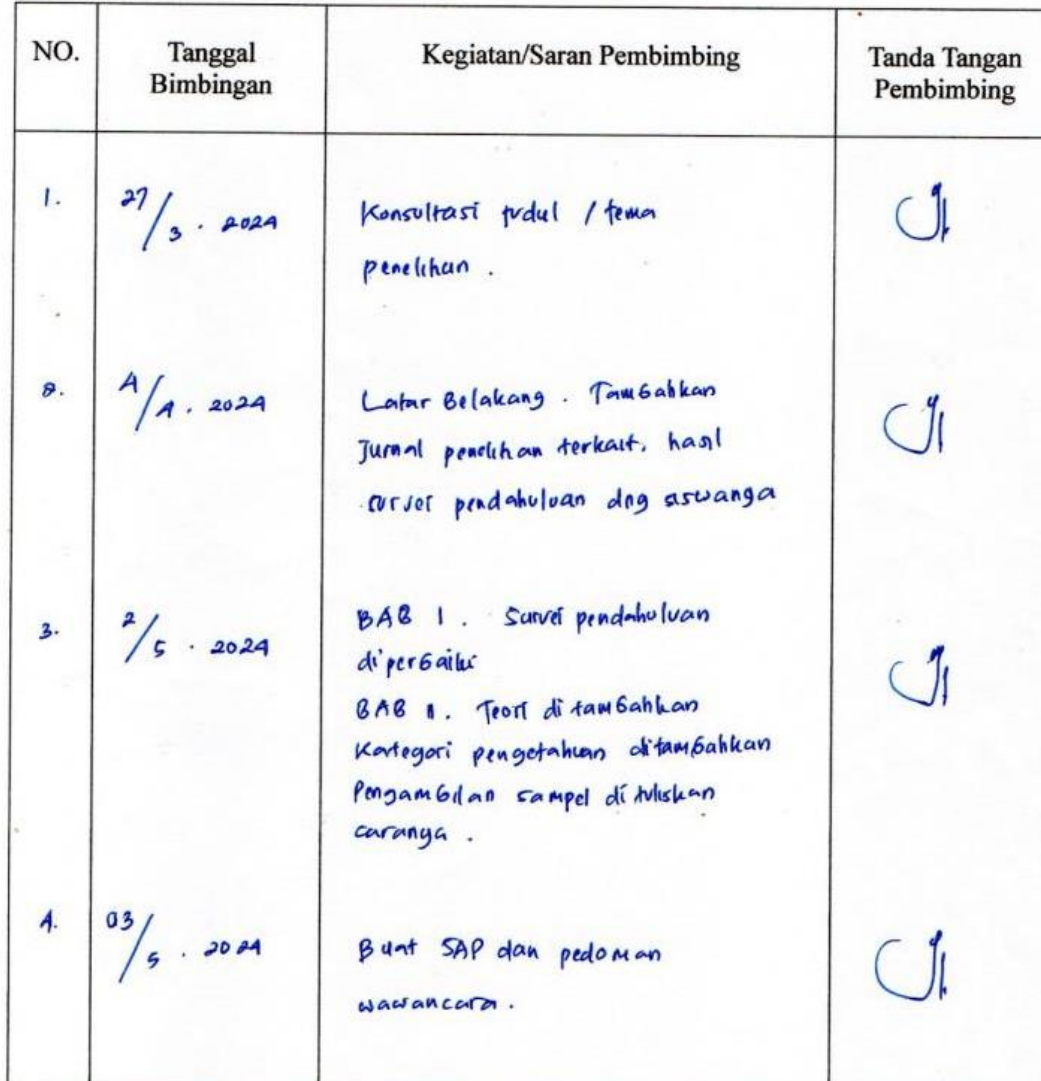 NO.
Tanggal Bimbingan
Kegiatan/Saran Pembimbing
Tanda Tangan Pembimbing
1.
27/3 . 2024
Konsultasi judul / tema
penelitian .
2.
4/4 . 2024
Latar Belakang . Tambahkan
Jurnal penelitian terkait, hasil
survei pendahuluan dng
3.
2/5 . 2024
BAB I . Survei pendahuluan
diperbaiki
BAB II . Teori ditambahkan
Kategori pengetahuan ditambahkan
Pengambilan sampel dituliskan
caranya .
4.
03/5 . 2024
Buat SAP dan pedoman
wawancara .